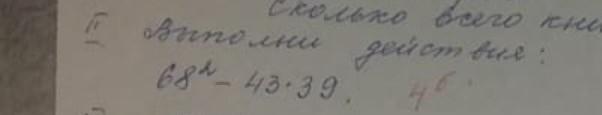 Сколько всего кни
II Выполни действия:
68² - 43·39. 4б.